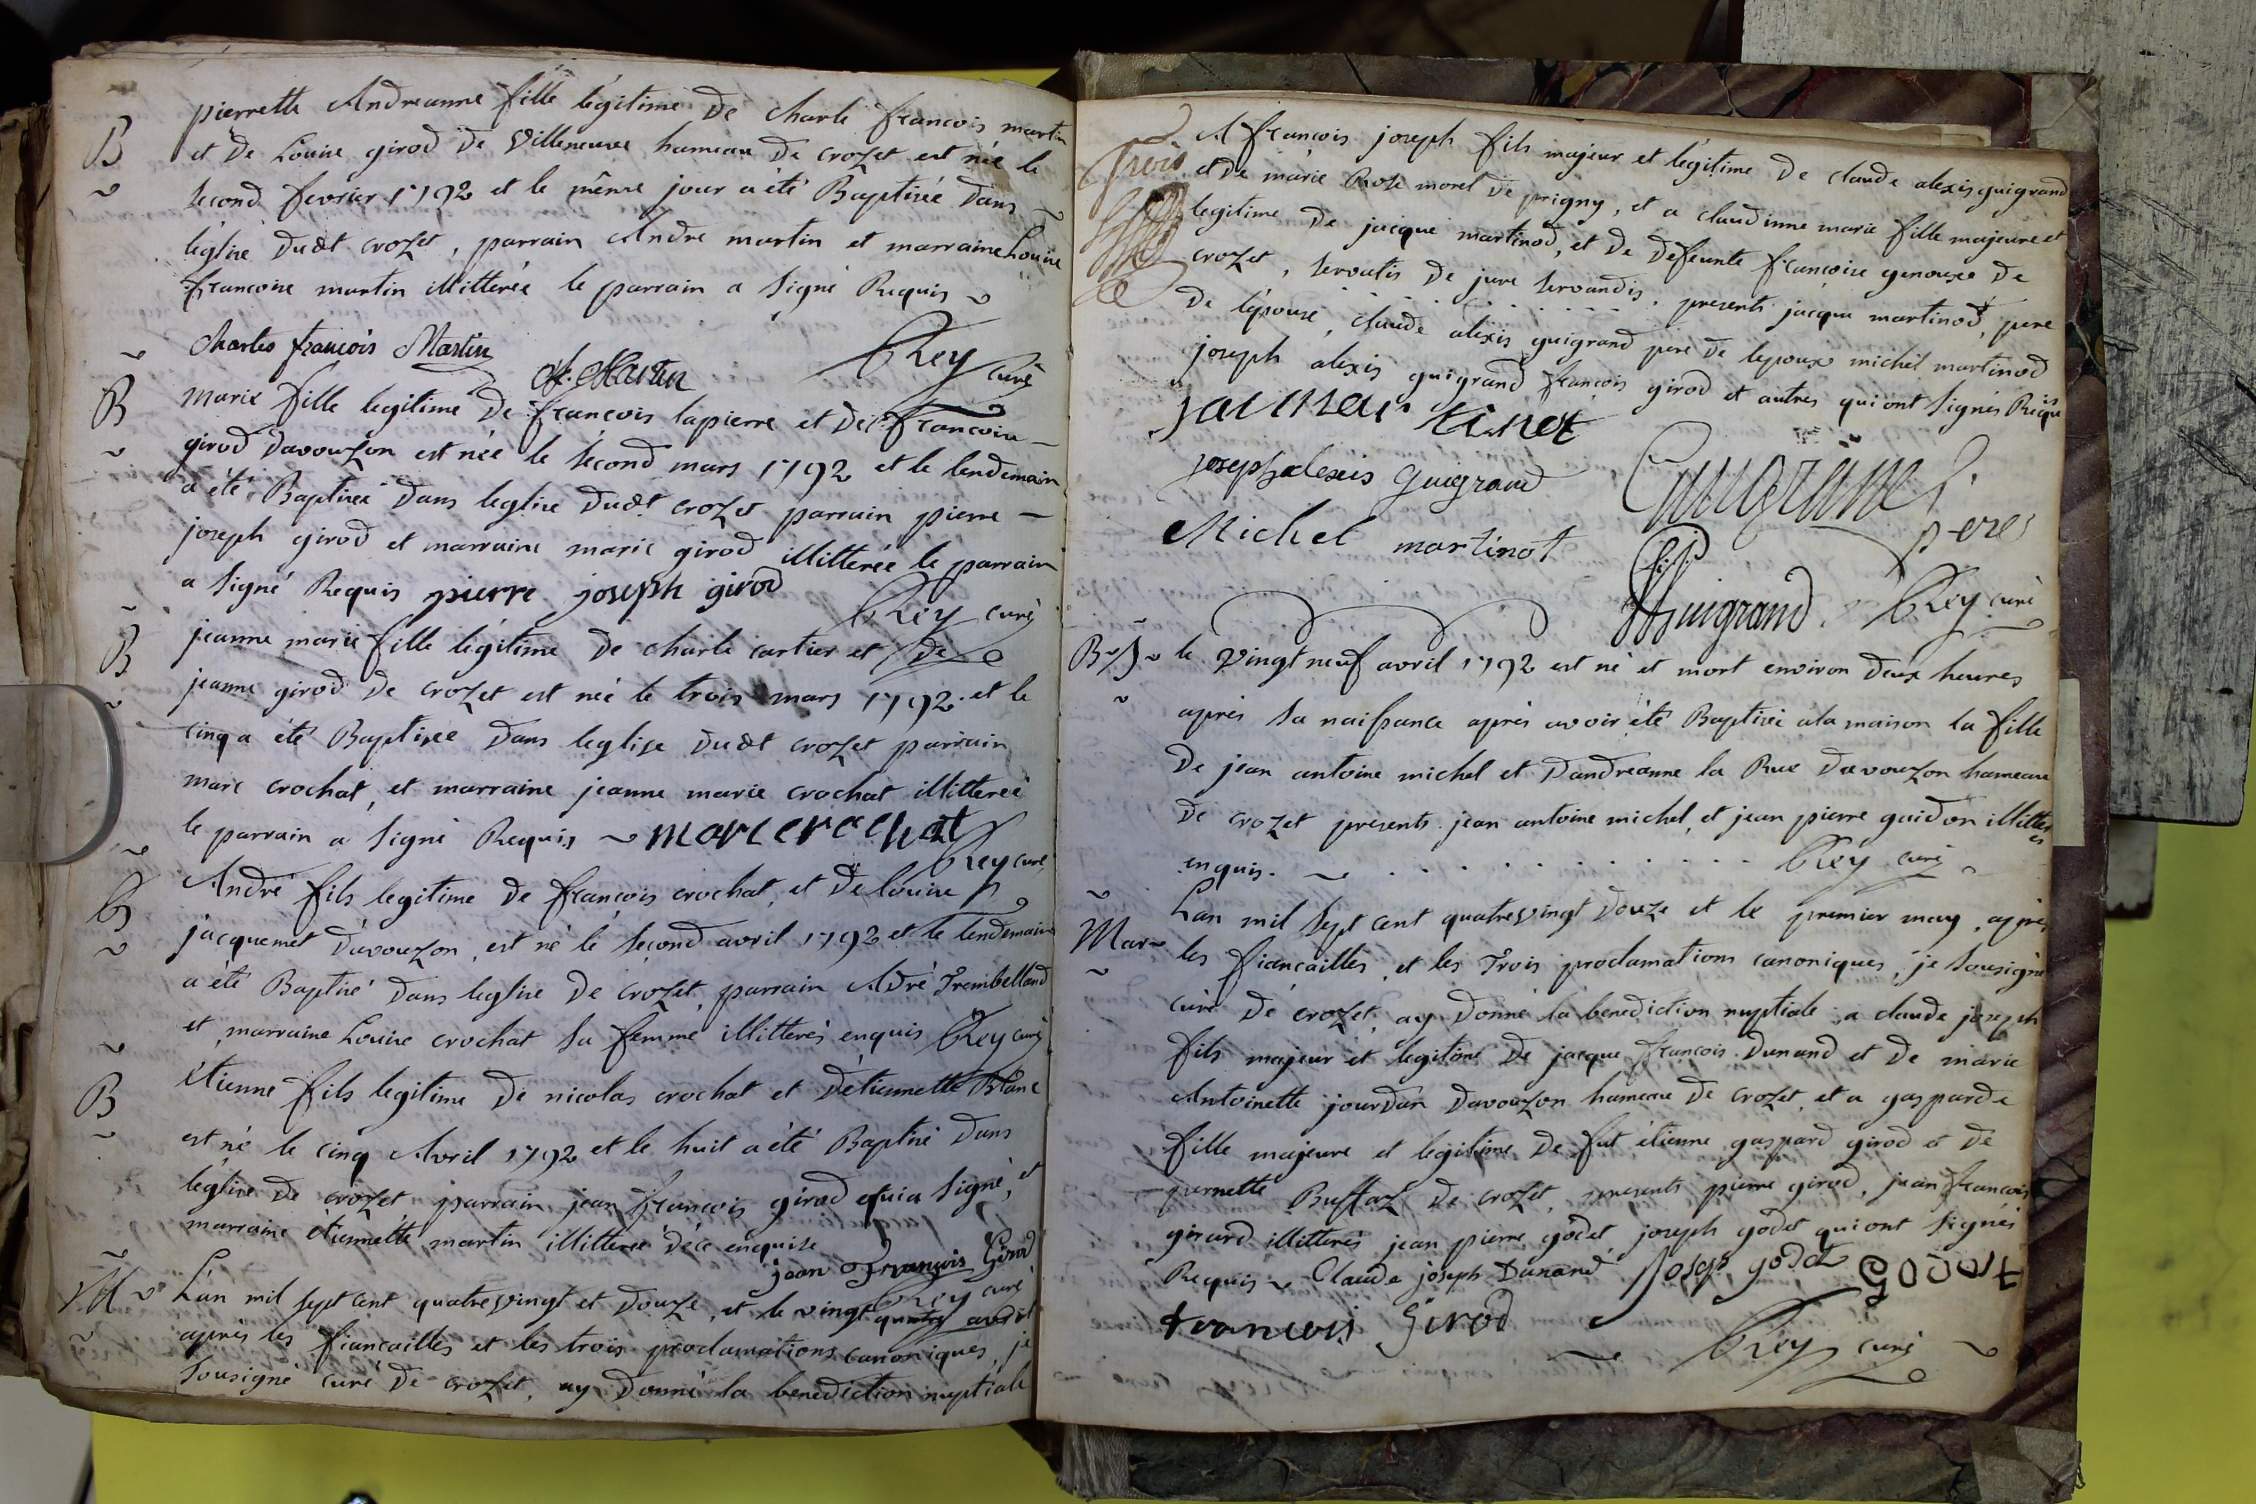 B
pierrette Andreanne fille légitime de charle françois martin
et de Louise girod de Villeneuve hameau de crozet est née le
second fevrier 1792 et le même jour a été Baptisée dans
léglise dudt crozet, parrain André martin et marraine Louise
françoise martin illittérée le parrain a signé Requis
Charles françois Martin A. Martin Rey curé
B
marie fille legitime de françois lapierre et de françoise
girod davouzon est née le second mars 1792 et le lendemain
a été Baptisée dans leglise dudt crozet parrain pierre
joseph girod et marraine marie girod illittérée le parrain
a signé Requis pierre joseph girod Rey curé
B
jeanne marie fille légitime de charle cartier et de
jeanne girod de crozet est née le trois mars 1792 et le
cinq a été Baptisée dans leglise dudt crozet parrain
marc crochat, et marraine jeanne marie crochat illitterée
le parrain a signé Requis marc crochat
Rey curé
B
André fils legitime de françois crochat, et de louise
jacquemet davouzon, est né le second avril 1792 et le lendemain
a été Baptisé dans leglise de crozet, parrain Adré Trembelland
et marraine Louise crochat sa femme illitterés enquis Rey curé
B
étienne fils legitime de nicolas crochat et détiennette Blanc
est né le cinq Avril 1792 et le huit a été Baptisé dans
léglise de crozet parrain jean françois girod qui a signé, et
marraine étiennette martin illitterée de ce enquise
jean François Girod
Rey curé
M
L'an mil sept cent quatrevingt et douze, et le vingt quatre avril
après les fiancailles et les trois proclamations canoniques, je
sousigné curé de crozet, ay donné la benediction nuptiale
A françois joseph fils majeur et légitime de claude alexis guigrand
et de marie Rose morel de prigny, et a claudinne marie fille majeure et
legitime de jacque martinod, et de defeunte françoise genouxe de
crozet, servatis de jure servandis. presents jacque martinod, pere
de lépouse, claude alexis guigrand pere de lepoux michel martinod
joseph alexis guigrand françois girod et autres qui ont signés Requis
josephalexis guigrand
Guigrand
peres
Michel martinot
Guigrand Rey curé
B
le vingt neuf avril 1792 est né et mort environ deux heures
après sa naissance après avoir été Baptisé a la maison la fille
de jean antoine michel et dandreanne la Rue davouzon hameau
de crozet presents jean antoine michel, et jean pierre guidon illitterés
enquis. Rey curé
Mar
L'an mil sept cent quatrevingt douze et le premier may, après
les fiancailles, et les Trois proclamations canoniques, je sousigné
curé de crozet, ay donné la benediction nuptiale a claude joseph
fils majeur et legitime de jacque françois Dunand et de marie
Antoinette jourdan davouzon hameau de crozet, et a gasparde
fille majeure et legitime de fut étienne gaspard girod et de
pernette Buffaz de crozet, presents pierre girod, jean françois
girard illitterés jean pierre godet joseph godet qui ont signés
Requis Claude joseph Dunand Joseph godet
francois Girod
Rey curé